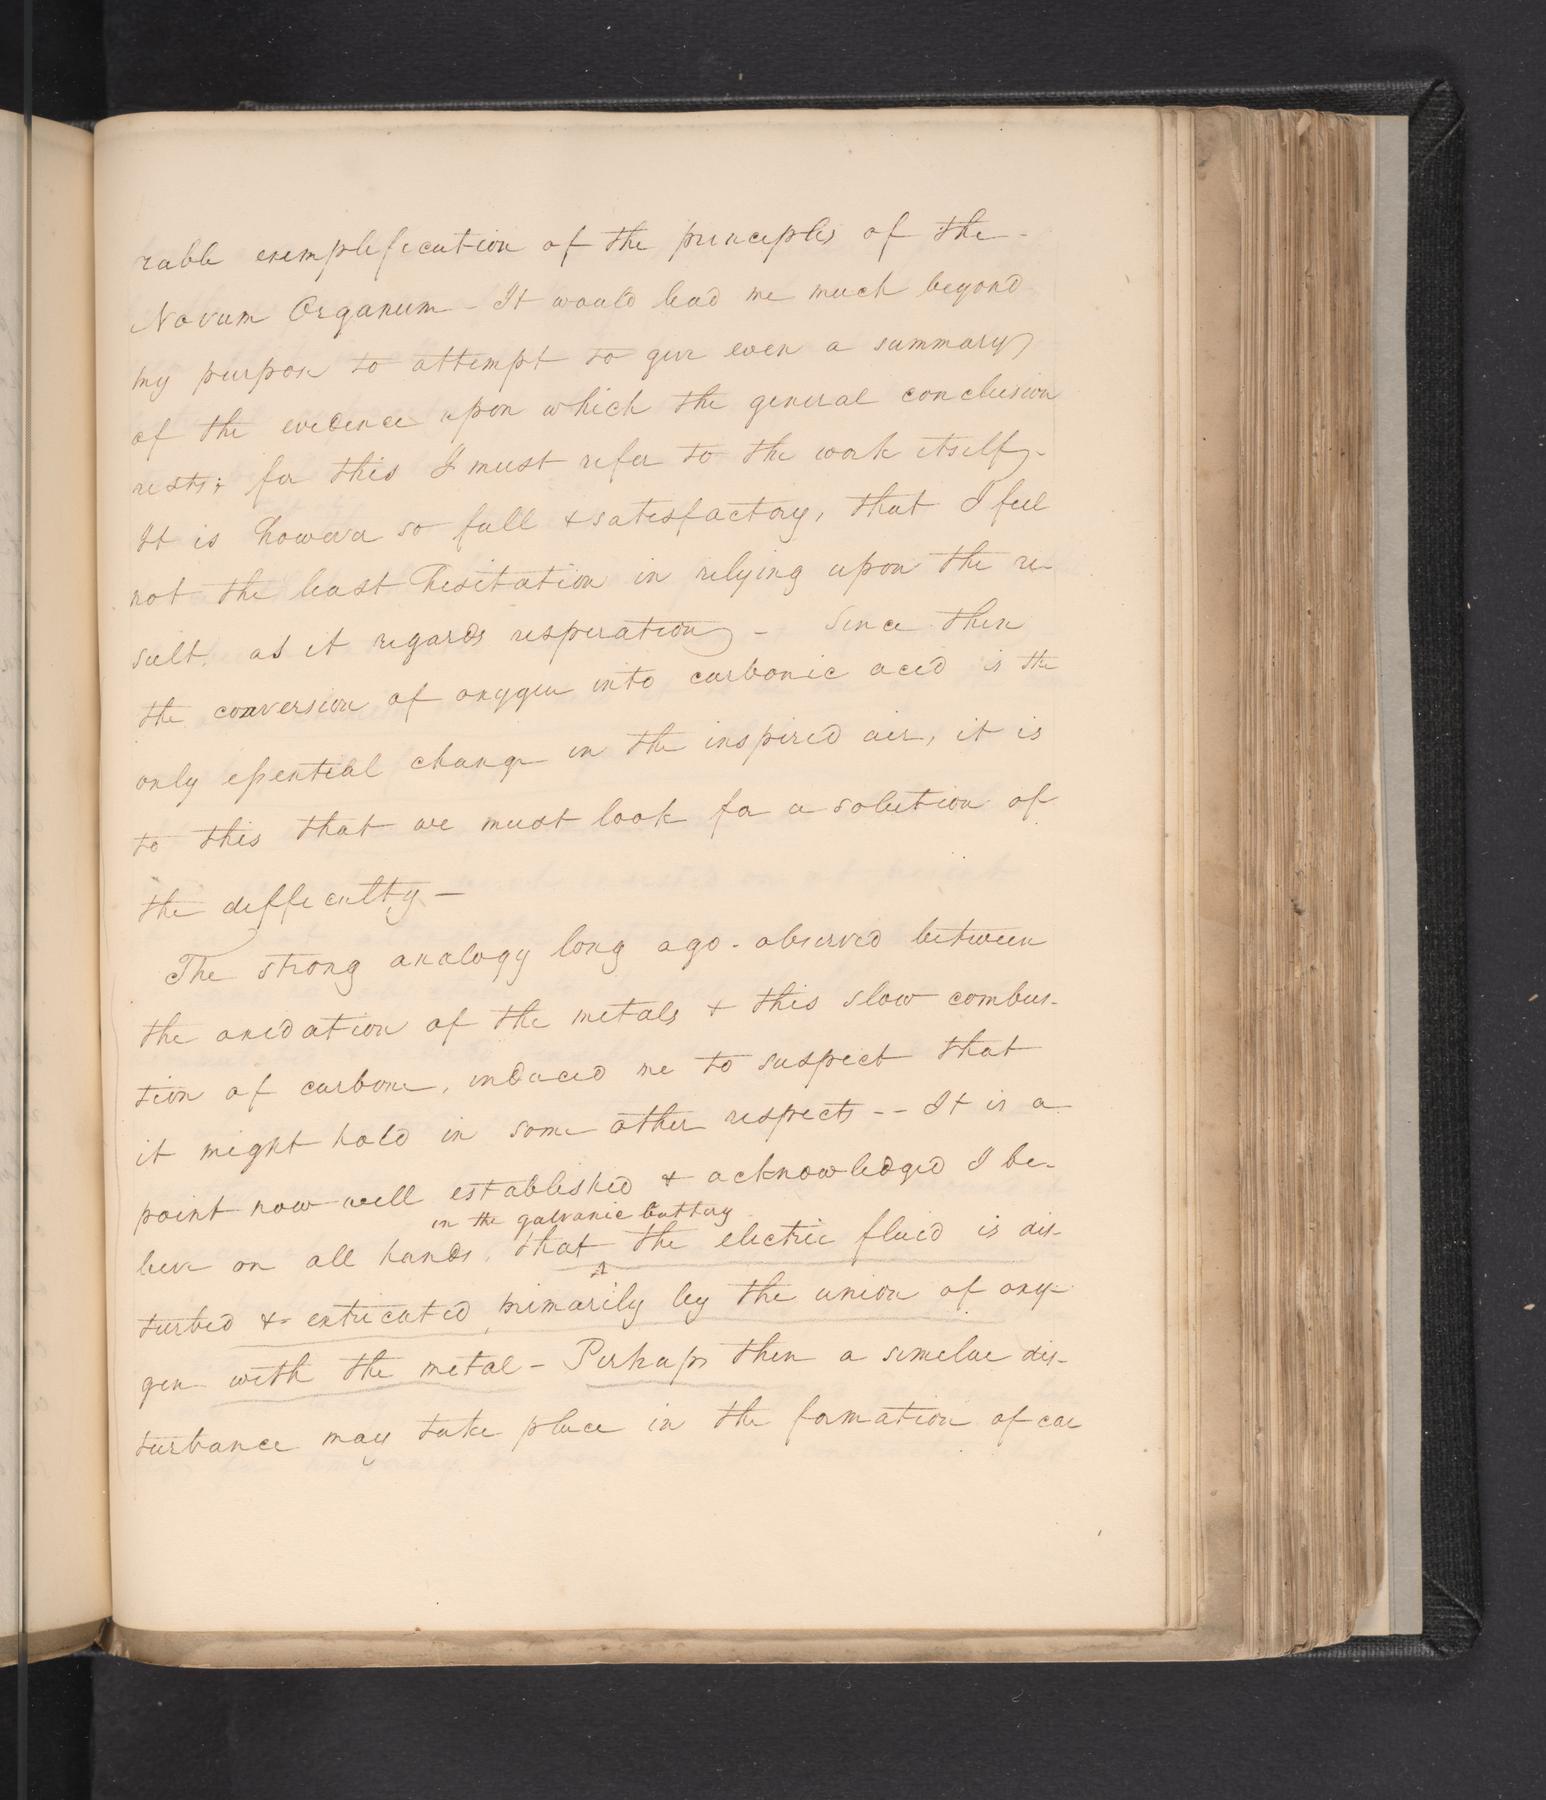 rable exemplification of the principles of the -
Novum Organum - It would lead me much beyond
my purpose to attempt to give even a summary
of the evidence upon which the general conclusion
rests; for this I must refer to the work itself -
It is however so full & satisfactory, that I feel
not the least hesitation in relying upon the re-
sult. as it regards respiration - Since then
the conversion of oxygen into carbonic acid is the
only essential change in the inspired air, it is
to this that we must look for a solution of
the difficulty -
The strong analogy long ago - observed between
the oxidation of the metals & this slow combus-
tion of carbone, induced me to suspect that
it might hold in some other respects -- It is a
point now well established & acknowledged I be-
in the galvanic battery
lieve on all hands, that the electric fluid is dis-
turbed & extricated, primarily by the union of oxy-
gen with the metal - Perhaps then a similar dis-
turbance may take place in the formation of car